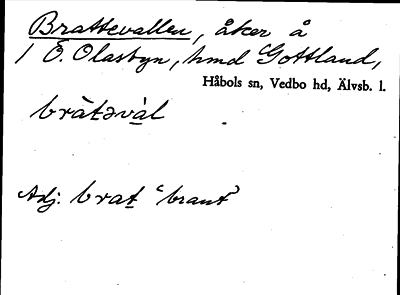 Brattevallen, åker å
1 Ö. Olasbyn, hmd Gottland,
Håbols sn, Vedbo hd, Älvsb. l.
bràtəvàl
Adj. brat 'brant'